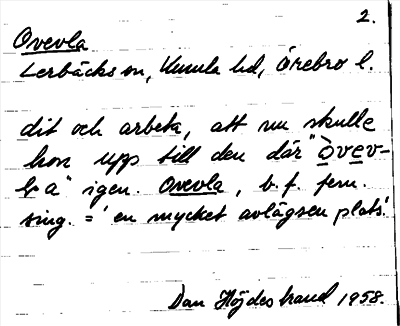 2.
Ovevla
Lerbäcks sn, Kumla hd, Örebro l.
dit och arbeta, att nu skulle
hon upp till den där "òvev-
la" igen. Ovevla, b.f. fem.
sing. = 'en mycket avlägsen plats'.
Dan Höjdestrand 1958.